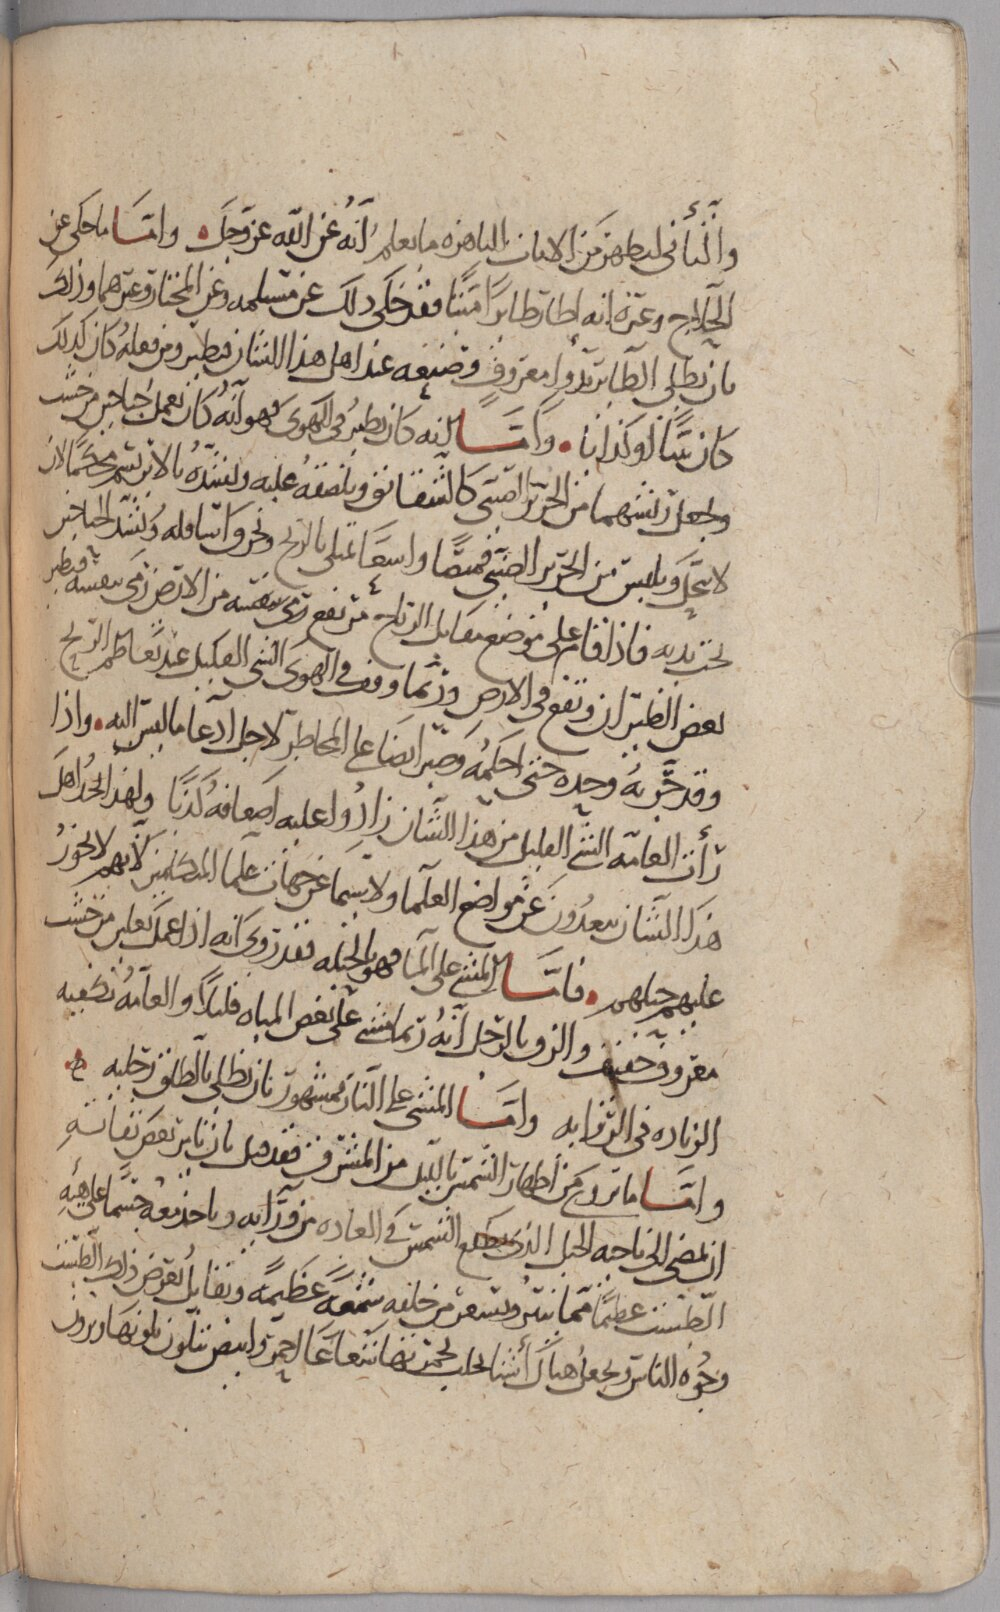 والثاني ليظهر من الايات الباهره ما يعلم أنه عن الله عز وجل • وامّا ما حكي عن
الحلاج وغيره انه اطار طايرًا ميتًا فقد حكي ذلك عن مسيلمه وعن المختار وغيرهما وذلك
بان يطلى الطاير بدوا معروف وصنعه عند اهل هذا الشان فيطير ومن فعله كان كذلك
كان نبيًّا لو كذابًا • وأمّا انه كان يطير في الهوى فهو أنه كان يعمل جناحين من خشب
ويجعل ريشهما من الحرير الصيني كالشقائق ويلصقه عليه ويشده بالابريسم محكمًا لان
لا ينحل ويلبس من الحرير الصيني قميصًا واسعًا يمتلى بالريح وتحرق اسافله ويشد الجناحين
تحت يديه فاذا قام على موضع مقابل الرياح مرتفع رمى بنفسه من الارض رمى بنفسه فيطير
بعض الطيران ويقع في الارض وربما وقف في الهوى الشي القليل عند تعاظم الريح
وقد جربه وحده حتى احكمه وصبر ايضا على المخاطرة لاجل ادعا ما ليس اليه • واذا
رأت العامه الشي القليل من هذا الشان زادوا عليه اضعافه كذبًا ولهذا الحد اهل
هذا الشان يبعدون عن مواضع العلما ولا سيما عن جهات علما المتكلمين لانهم لا تجوز
عليهم حيلهم • فامّا المشي على الما فهو بالحيله فقد روى انه اذا عمل نعلين من خشب
معروف خفيف والزق بالرجل أنه ربما مشى على بعض المياه قليلاً والعامة تكفيه
الزياده في الروايه وامّا المشي على النار فمشهور بان يطلى بالطلق رجليه
وامّا ما يروى من اظهار الشمس بالليل من المشرق فقد قيل بان يامر بعض ثقاته
ان يمضي الى ناحيه الجبل الذي تطلع الشمس في العاده من ورايه وياخذ معه جسمًا على هيئة
الطشت عظيمًا مما ينير ويسعر من خلفه شمعة عظيمه ويقابل بعرض ذلك الطشت
وجوه الناس ويجعل هناك أشيا تجلب لحمرتها شعاعًا احمر وابيض تتلون بلونها ويرون